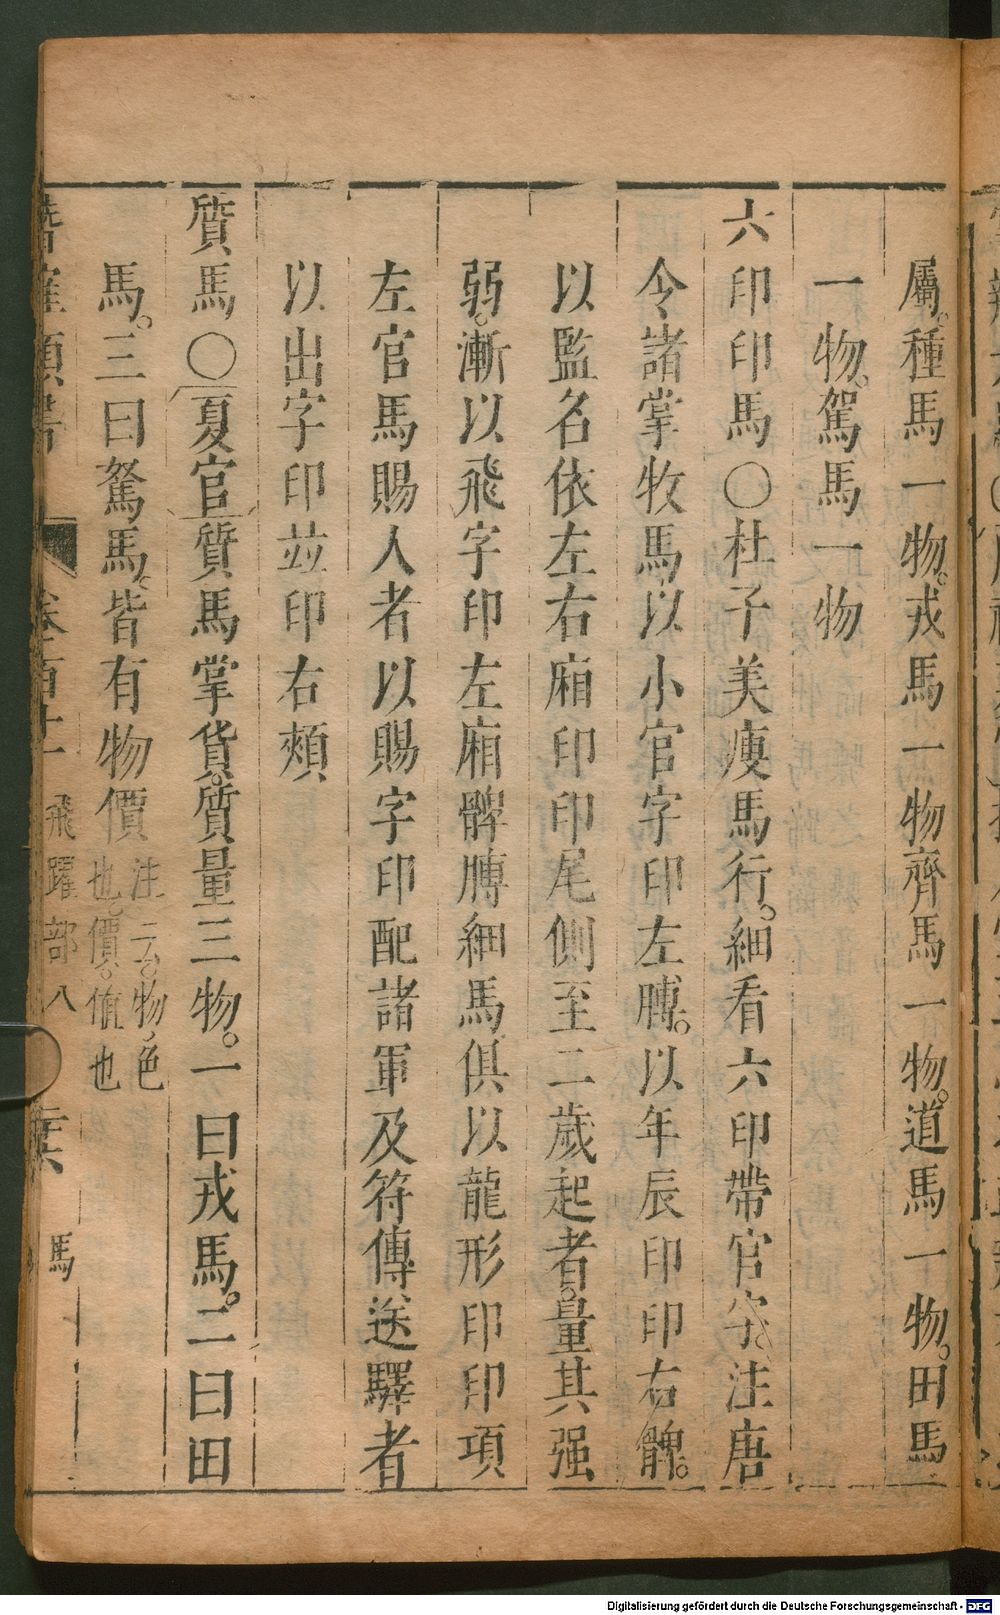 屬。種馬一物。戎馬一物齊馬一物。道馬一物。田馬
一物。駑馬一物
六印印馬○杜子美瘦馬行。細看六印帶官字。注唐
令諸掌牧馬以小官字印左膊。以年辰印印右髀。
以監名依左右廂印印尾側至二歲起者。量其强
弱。漸以飛字印左廂髀膊細馬俱以龍形印印項
左官馬賜人者以賜字印配諸軍及符傳送驛者
以出字印竝印右頰
質馬○夏官質馬掌貨。質量三物。一曰戎馬。二曰田
馬。三曰駑馬。皆有物價
注云。物色
也。價。值也
卷百十一 飛躍部八 馬
Digitalisierung gefördert durch die Deutsche Forschungsgemeinschaft - DFG